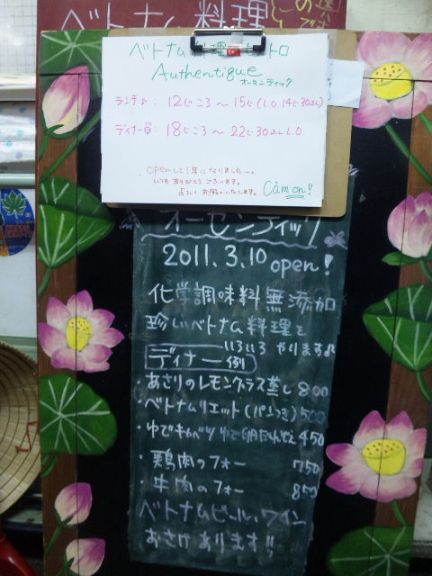 ベトナム料理
ベトナム料理ビストロ
Authentique
オーセンティック
ランチ 12じころ〜15じ(L.O.14じ30ふん)
ディナー 18じころ〜22じ30ふんL.O.
openして1年になりました。
いつもありがとうございます。
よろしくお願いいたします。
Cảm ơn!
オーセンティック
2011.3.10 open!
化学調味料無添加
珍しいベトナム料理を
いろいろ やります♪
ディナー 例
・あさりのレモングラス蒸し 800
・ベトナムリエット(パンつき) 500
・ゆでキャベツ ゆで卵だれぞえ 450
・鶏肉のフォー 750
・牛肉のフォー 850
ベトナムビール、ワイン
おさけあります!!